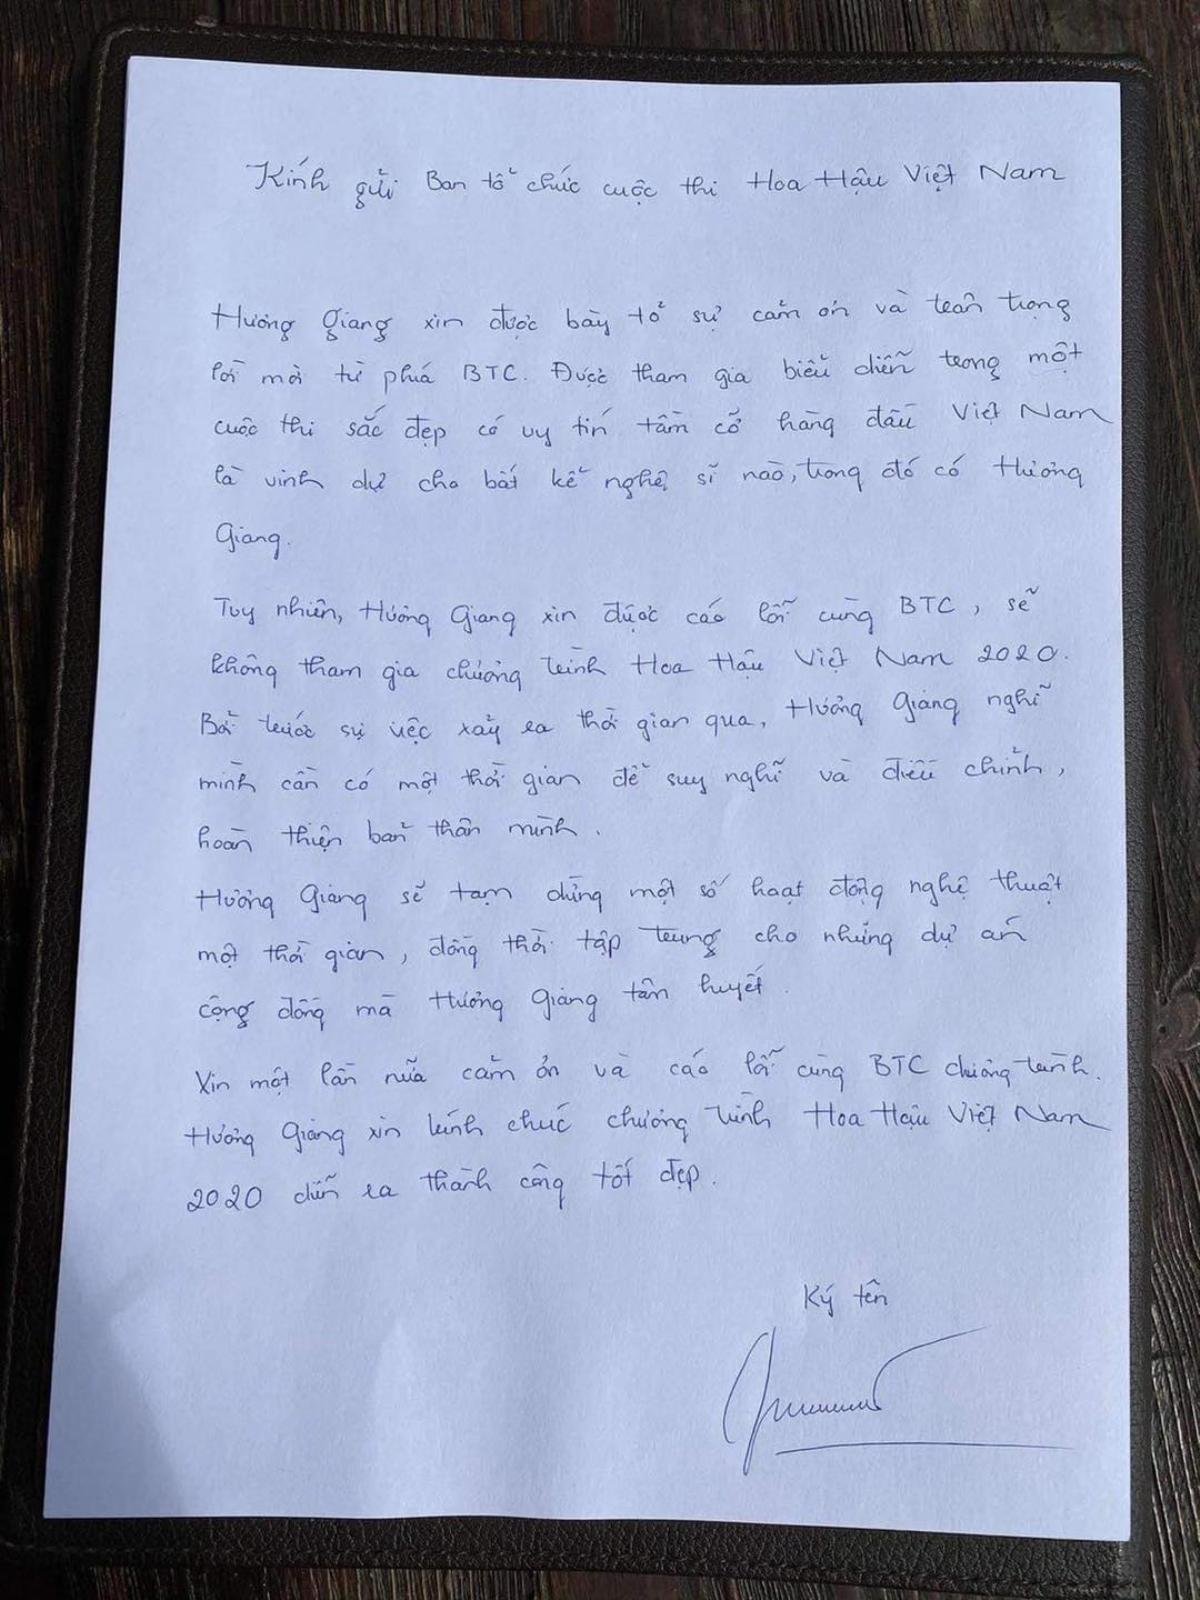 Kính gửi Ban tổ chức cuộc thi Hoa Hậu Việt Nam
Hương Giang xin được bày tỏ sự cảm ơn và trân trọng
lời mời từ phía BTC. Được tham gia biểu diễn trong một
cuộc thi sắc đẹp có uy tín tầm cỡ hàng đầu Việt Nam
là vinh dự cho bất kể nghệ sĩ nào, trong đó có Hương
Giang.
Tuy nhiên, Hương Giang xin được cáo lỗi cùng BTC, sẽ
không tham gia chương trình Hoa Hậu Việt Nam 2020.
Bởi trước sự việc xảy ra thời gian qua, Hương Giang nghĩ
mình cần có một thời gian để suy nghĩ và điều chỉnh,
hoàn thiện bản thân mình.
Hương Giang sẽ tạm dừng một số hoạt động nghệ thuật
một thời gian, đồng thời tập trung cho những dự án
cộng đồng mà Hương Giang tâm huyết.
Xin một lần nữa cảm ơn và cáo lỗi cùng BTC chương trình.
Hương Giang xin kính chúc chương trình Hoa Hậu Việt Nam
2020 diễn ra thành công tốt đẹp.
Ký tên